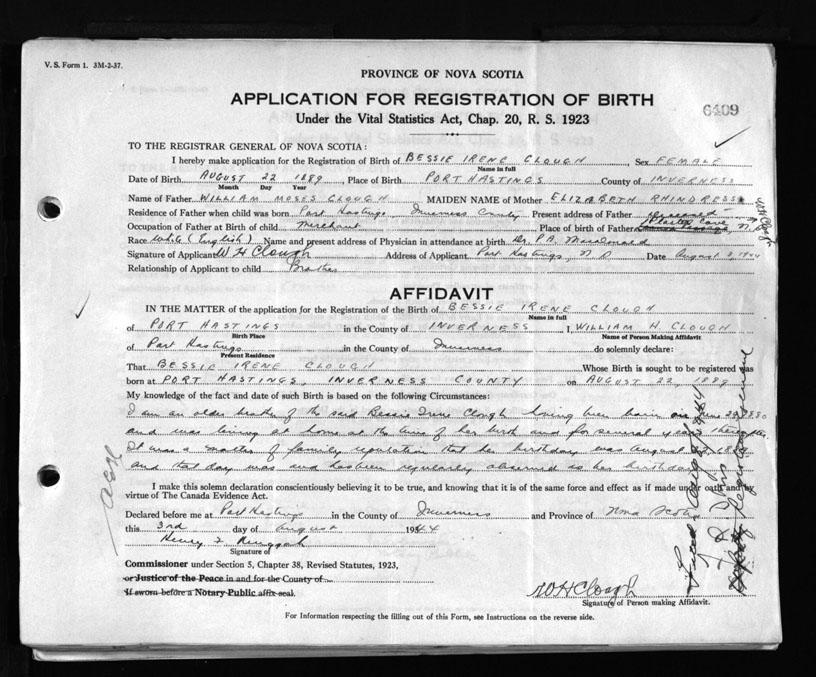 V. S. Form 1. 3M-2-37.
PROVINCE OF NOVA SCOTIA
APPLICATION FOR REGISTRATION OF BIRTH
6409
Under the Vital Statistics Act, Chap. 20, R. S. 1923
TO THE REGISTRAR GENERAL OF NOVA SCOTIA:
I hereby make application for the Registration of Birth of BESSIE IRENE CLOUGH, Sex FEMALE
Name in full
Date of Birth AUGUST 22 1889, Place of Birth PORT HASTINGS County of INVERNESS
Month Day Year
Name of Father WILLIAM MOSES CLOUGH MAIDEN NAME of Mother ELIZABETH RHINDRESS
Residence of Father when child was born Port Hastings, Inverness County Present address of Father deceased
Occupation of Father at Birth of child Merchant Place of birth of Father Plaster Cove N.S.
Race White (English) Name and present address of Physician in attendance at birth Dr. P.A. Macdonald
Signature of Applicant W H Clough Address of Applicant Port Hastings, N S Date August 3, 1944
Relationship of Applicant to child Brother
W H Clough
AFFIDAVIT
IN THE MATTER of the application for the Registration of the Birth of BESSIE IRENE CLOUGH
Name in full
of PORT HASTINGS in the County of INVERNESS I, WILLIAM H. CLOUGH
Birth Place Name of Person Making Affidavit
of Port Hastings in the County of Inverness do solemnly declare:
Present Residence
That BESSIE IRENE CLOUGH Whose Birth is sought to be registered was
born at PORT HASTINGS, INVERNESS COUNTY on AUGUST 22, 1889
My knowledge of the fact and date of such Birth is based on the following Circumstances:
I am an older brother of the said Bessie Irene Clough having been born on June 29 1880
and was living at home at the time of her birth and for several years thereafter.
It was a matter of family reputation that her birthday was August 22, 1889
and that day was and has been regularly observed as her birthday
I make this solemn declaration conscientiously believing it to be true, and knowing that it is of the same force and effect as if made under oath and by
virtue of The Canada Evidence Act.
Declared before me at Port Hastings in the County of Inverness and Province of Nova Scotia
this 3rd day of August 1944
Henry
Signature of
Commissioner under Section 5, Chapter 38, Revised Statutes, 1923,
or Justice of the Peace in and for the County of
If sworn before a Notary Public affix seal.
W H Clough
Signature of Person making Affidavit.
For Information respecting the filling out of this Form, see Instructions on the reverse side.
Aug 8, 1944
Deputy Registrar General